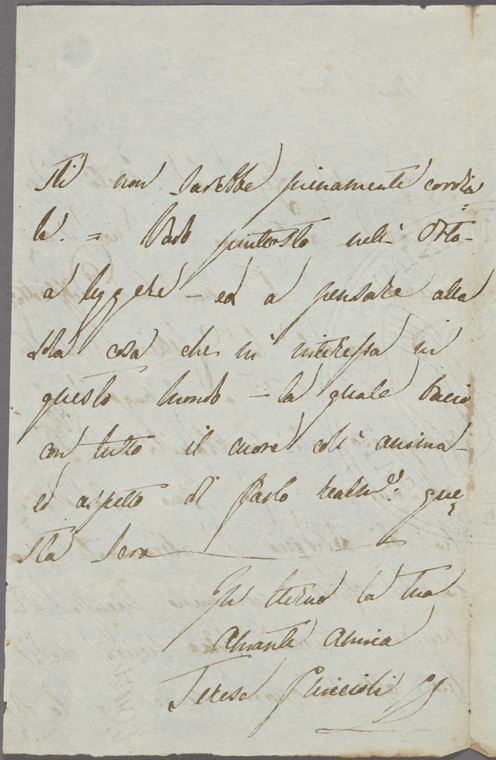 sti non sarebbe pienamente cordia
le. = Vado piuttosto nell' Orto -
a leggere - ed a pensare alla
sola cosa che m' interessa in
questo mondo - la quale bacio
con tutto il cuore coll' anima -
ed aspetto di farlo realm.e que
sta sera
In eterno la tua
Amante amica
Teresa Guiccioli